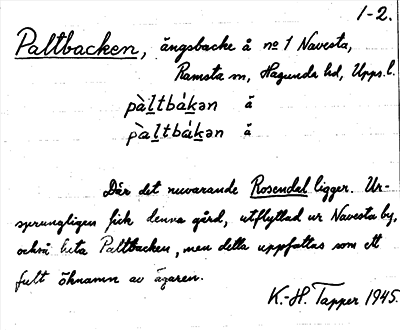 1-2.
Paltbacken, ängsbacke å no 1 Navesta,
Ramsta sn, Hagunda hd, Upps. l.
pàltbák̲ən ä
pàltbák̲ən ä
Där det nuvarande Rosendal ligger. Ur-
sprungligen fick denna gård, utflyttad ur Navesta by,
också heta Paltbacken, men detta uppfattas som ett
fult öknamn av ägaren.
K.-H. Tapper 1945.